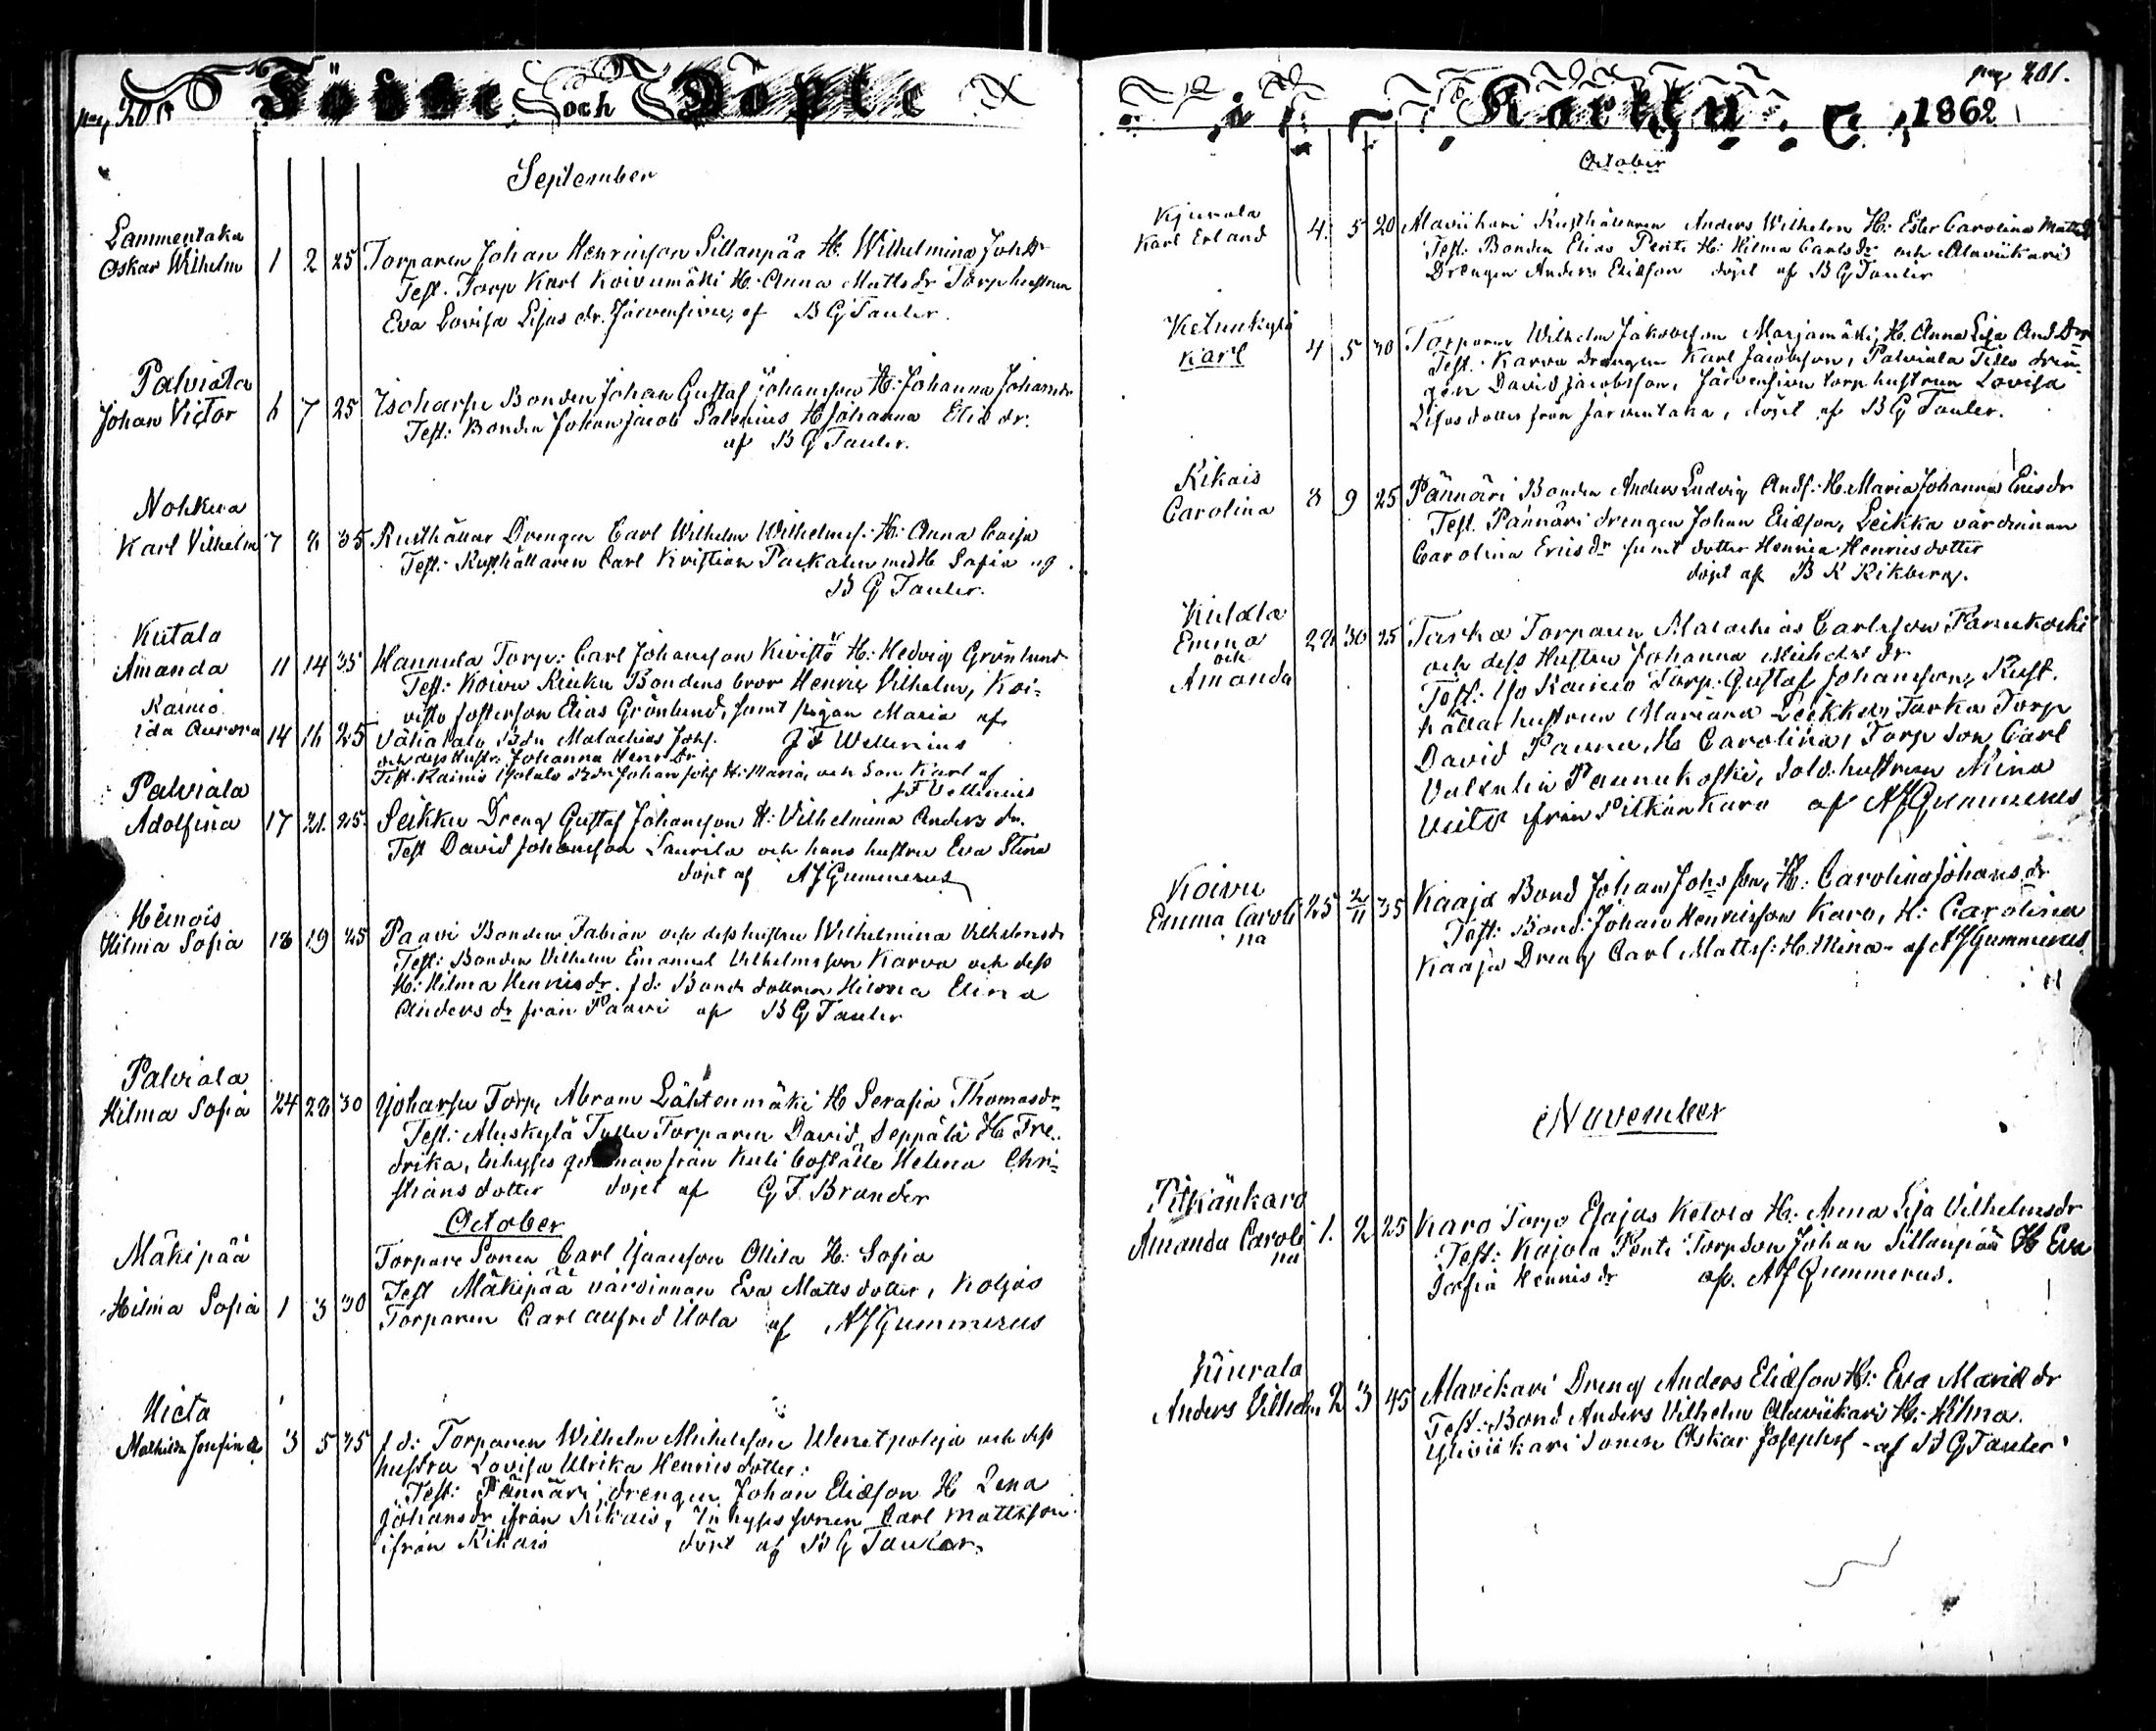 pag 200
Födde och Döpte
September
Lammentaka
Oskar Wilhelm 1 2 25 Torparen Johan Henricsson Sillanpää H. Wilhelmina Joh.dr
Test. Torp Karl Koivumäki H. Anna Matts dr Torphustrun
Eva Lovisa Esias dr. Järvensivu, af B G Tauler.
Palviala
Johan Victor 6 7 25 Isoharju Bonden Johan Gustaf Johansson H: Johanna Johansdr
Test: Bonden Johan Jacob Salenius H Johanna Elia dr.
af B G Tauler.
Nohkua
Karl Vilhelm 7 8 35 Rusthållar Drengen Carl Wilhelm Wilhelmss. H: Anna Caisa
Test: Rusthållaren Carl Kristian Paikalen med H Sofia af
B G Tauler.
Kutala
Amanda 11 14 35 Hannula Torp: Carl Johansson Kivistö H: Hedvig Grönlund
Test: Koivu Kiuku Bondens bror Henric Vilhelm, Koi-
visto fosterson Elias Grönlund, samt pigan Maria af
J F Wellenius
Kainio
Ida Aurora 14 16 25 Välitalo Bdn Malachias Johs.
och dess Hustr. Johanna Henr Dr
Test. Kainio Isotalo Bdn Johan Johs H: Maria, och son Karl af
J F Vellenius
Palviala
Adolfina 17 21. 25. Seikku Dreng Gustaf Johansson H: Vilhelmina Anders dr.
Test David Johansson Laurila och hans hustru Eva Stina
döpt af A J Gummerus
Heinois
Hilma Sofia 18 19 25 Paavi Bonden Fabian och dess hustru Wilhelmina Vilhelmsdr
Test: Bonden Vilhelm Emanuel Vilhelmsson Karva och dess
H: Hilma Henricsdr. f d: Bonde dottren Hilma Elina
Anders dr från Paavi af B G Tauler
Palviala
Hilma Sofia 24 28 30 Yoharju Torp, Abram Lähtenmäki H Serafia Thomasdr
Test: Aluskylä Tullu Torparen David Seppälä H Fre-
drika, Inhyses qvinnan från Kuli boställe Helena Chri-
stians dotter döpt af G F. Brander
October
Mäkipää
Hilma Sofia 1 3 30 Torpare Sonen Carl Isaacsson Ollila H: Sofia
Test Mäkipää värdinnan Eva Matts dotter, Koljas
Torparen Carl Alfred Uola af A J Gummerus
Hieta
Mathilda Josefina 3 5 35 f d: Torparen Wilhelm Michelsson Wenetpohja och dess
hustru Lovisa Ulrika Henrics dotter:
Test: Pännäri drengen Johan Eliasson H Lena
Johans dr ifrån Kikais, Inhyses sonen Carl Mattsson
ifrån Kikais döpt af B G Tauler.
pag 201.
i Karkku 1862
October
Kiurala
Karl Erland 4. 5 20 Alaviikari Rusthållaren Anders Wilhelm H: Ester Carolina Mattsdr
Test: Bonden Elias Pertt H: Hilma Carls dr och Alaviikari
Drengen Anders Eliasson döpt af B G Tauler
Kelunkylä
Karl 4 5 30 Torparen Wilhelm Jakobsson Marjamäki, H. Anna Lisa And Dr
Test. Karva Drengen Karl Jacobsson, Palviala Tillo dren-
gen David Jacobsson, Järvensivu torp hustrun Lovisa
Esias dotter från Järventaka, döpt af B G Tauler.
Kikais
Carolina 8 9 25 Pännäri Bonden Anders Ludvig Ands: H. Maria Johanna Ericsdr
Test. Pännäri drengen Johan Eliasson, Leikka värdinnan
Carolina Erics dr samt dotter Henrica Henrics dotter
döpt af B K Kikberg.
Kulala
Emma
och
Amanda 28 30 25 Tarka Torparen Malachias Carlsson Paunukoski
och dess Hustru Johanna Michels dr
Test: Iso Kainio Torp: Gustaf Johansson, Rust-
hållar hustrun Mariana Leikku, Tarka Torp
David Paunu, H. Carolina, Torp son Carl
Valentin Paunukoski, Sold. hustrun Mina
från Pitkänkaro af A J Gummerus
Koivu
Emma Caroli
na 25 2/11 35 Kaaja Bond Johan Johs son, H: Carolina Johans dr
Test: Bond: Johan Henricsson Karo, H: Carolina
Kaaja Dreng Carl Mattss: H. Mina - af A J Gummerus
November
Pitkänkaro
Amanda Caroli
na 1. 2 25 Karo Torp Esajas Ketola H: Anna Lisa Vilhelmsdr
Test: Kojola Pentti Torpson Johan Sillanpää H Eva
Sofia Henrics dr af. A J Gummerus.
Kiurala
Anders Vilhelm 2 3 45 Alavikari Dreng Anders Eliasson H: Eva Maria dr
Test: Bond Anders Vilhelm Alaviikari H: Hilma.
Yliviikari Sonen Oskar Josephss - af B G Tauler